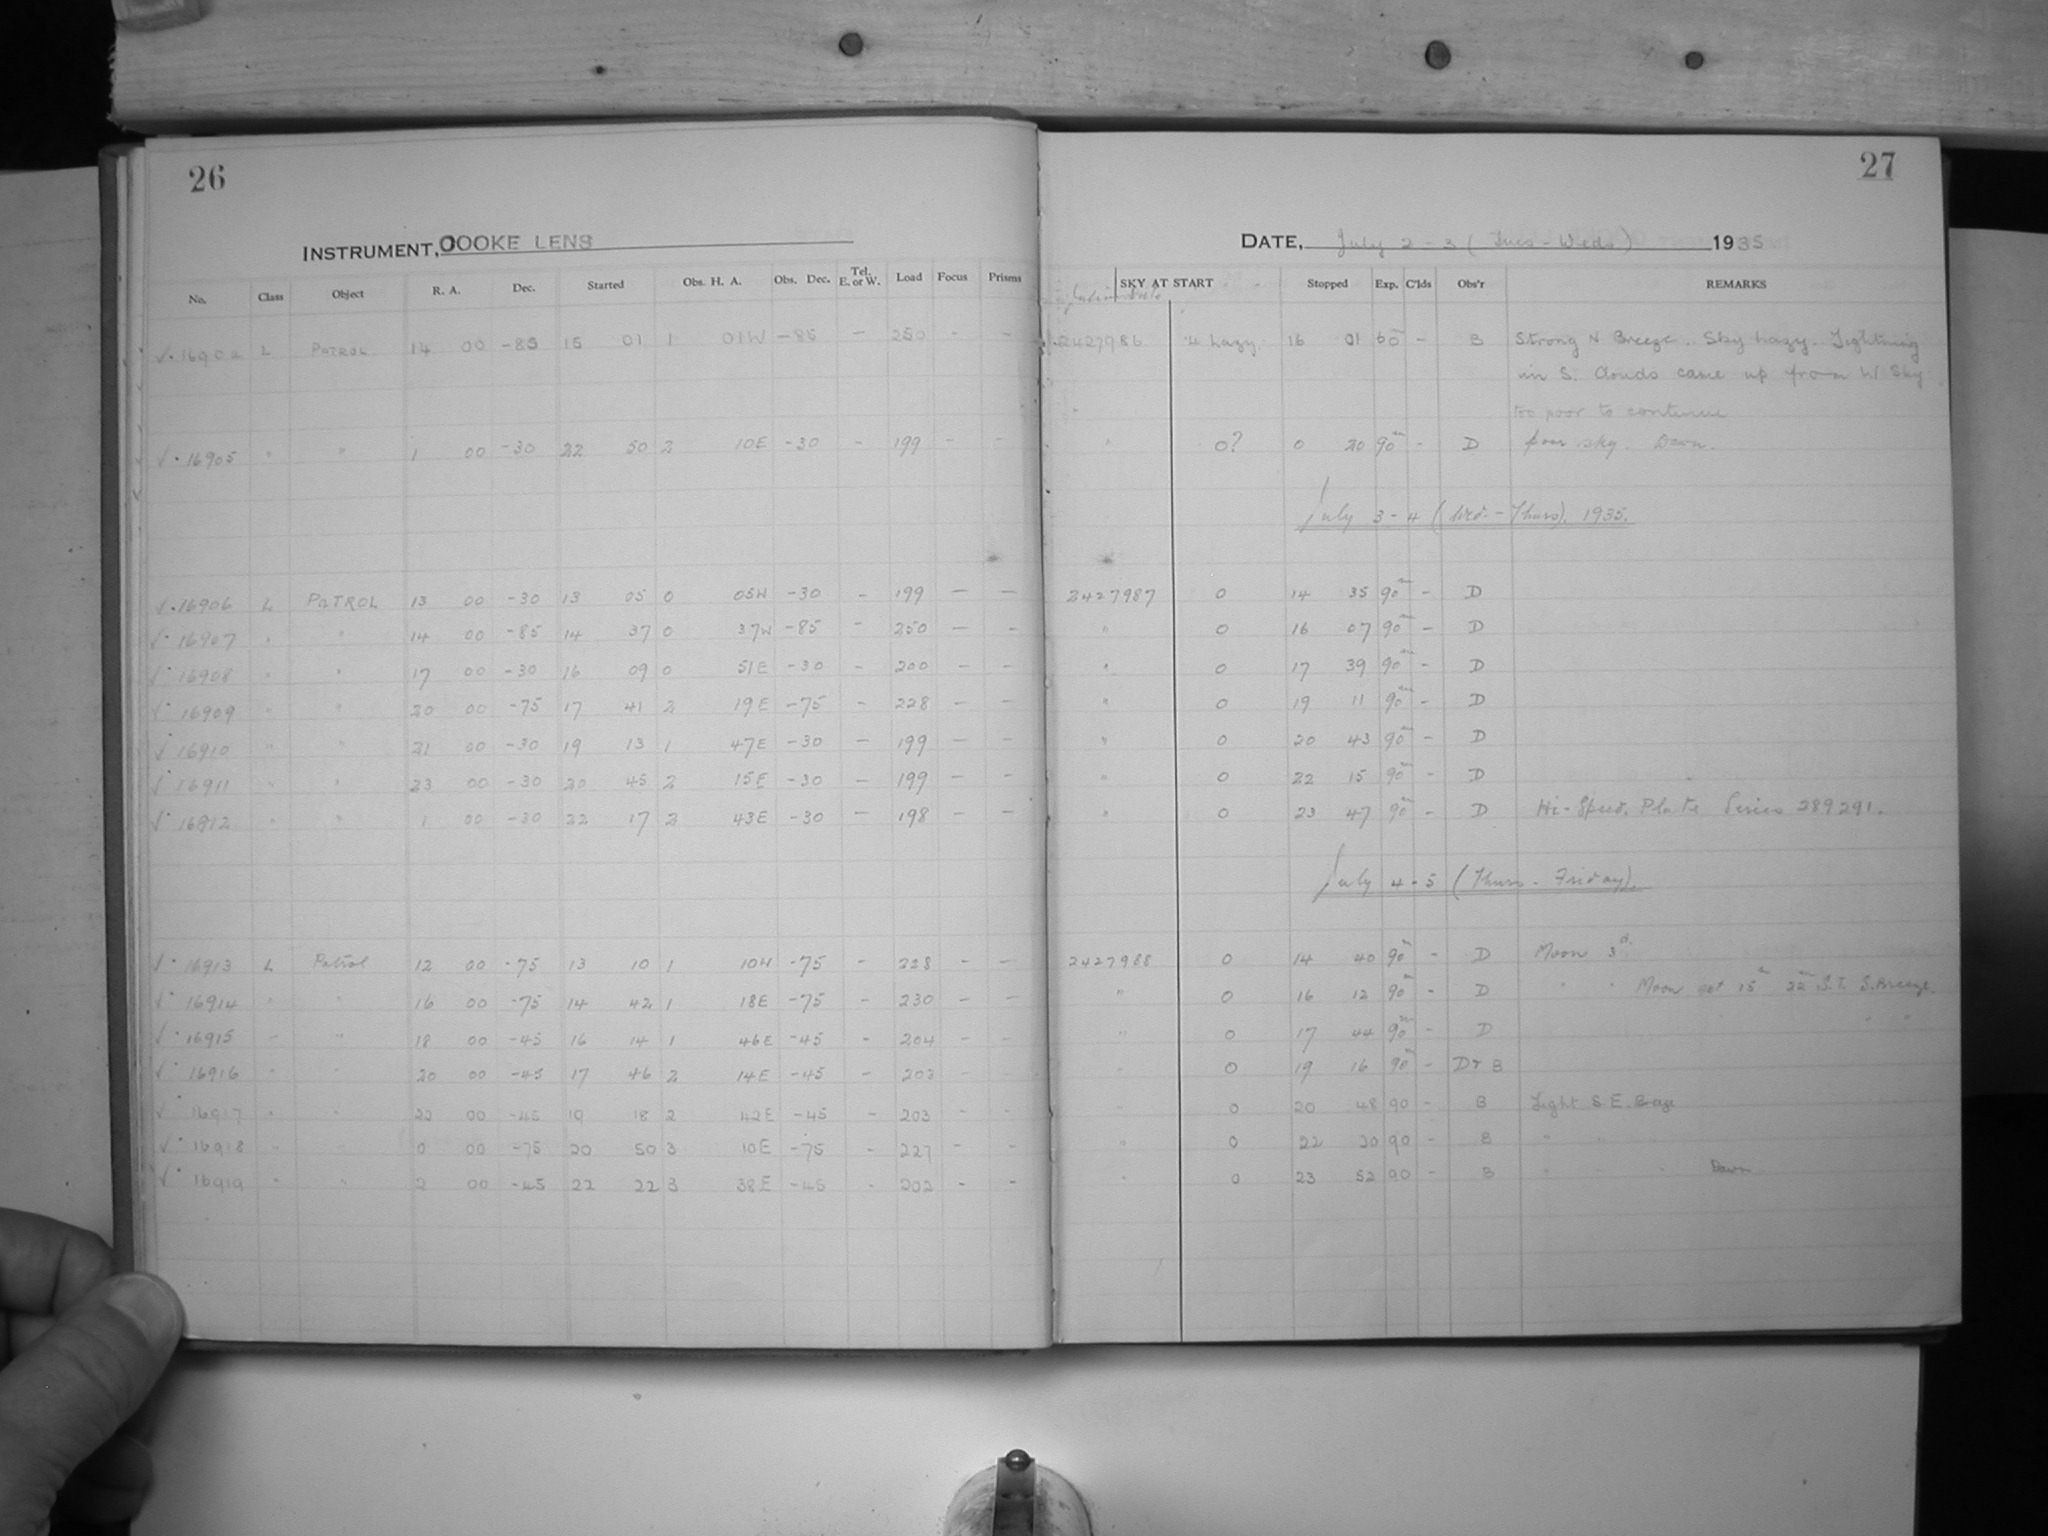 26
INSTRUMENT, COOKE LENS
No. Class Object R. A. Dec. Started Obs. H. A. Obs. Dec. Tel. E. or W. Load Focus Prisms
√ . 16904 L PATROL 14 00 -85 15 01 1 01W -85 - 250 - -
√ . 16905 " " 1 00 -30 22 50 2 10E -30 - 199 - -
√ . 16906 L PATROL 13 00 -30 13 05 0 05W -30 - 199 - -
√ . 16907 " " 14 00 -85 14 37 0 37W -85 - 250 - -
√ . 16908 " " 17 00 -30 16 09 0 51E -30 - 200 - -
√ . 16909 " " 20 00 -75 17 41 2 19E -75 - 228 - -
√ . 16910 " " 21 00 -30 19 13 1 47E -30 - 199 - -
√ . 16911 " " 23 00 -30 20 45 2 15E -30 - 199 - -
√ . 16912 " " 1 00 -30 22 17 2 43E -30 - 198 - -
√ . 16913 L Patrol 12 00 -75 13 10 1 10W -75 - 228 - -
√ . 16914 " " 16 00 -75 14 42 1 18E -75 - 230 - -
√ . 16915 " " 18 00 -45 16 14 1 46E -45 - 204 - -
√ . 16916 " " 20 00 -45 17 46 2 14E -45 - 203 - -
√ . 16917 " " 22 00 -45 19 18 2 42E -45 - 203 - -
√ . 16918 " " 0 00 -75 20 50 3 10E -75 - 227 - -
√ . 16919 " " 2 00 -45 22 22 3 38E -45 - 202 - -
27
DATE, July 2 - 3 (Tues - Weds) 1935
SKY AT START Stopped Exp. C'lds Obs'r REMARKS
2427986 4 hazy. 16 01 60m - B Strong N Breeze. Sky hazy. Lightning
in S. Clouds came up from W Sky
too poor to continue
" 0? 0 20 90m - D Poor sky. Dawn.
July 3 - 4 (Wed. - Thurs), 1935.
2427987 0 14 35 90m - D
" 0 16 07 90m - D
" 0 17 39 90m - D
" 0 19 11 90m - D
" 0 20 43 90m - D
" 0 22 15 90m - D
" 0 23 47 90m - D Hi-Speed. Plate Series 289291.
July 4 - 5 (Thurs. - Friday).
2427988 0 14 40 90m - D Moon 3d.
" 0 16 12 90m - D " " Moon set 15h 22m S.T. S. Breeze.
" 0 17 44 90m - D " "
" 0 19 16 90m - D+B
" 0 20 48 90 - B Light S E. Breeze
" 0 22 20 90 - B " " "
" 0 23 52 90 - B " " " Dawn